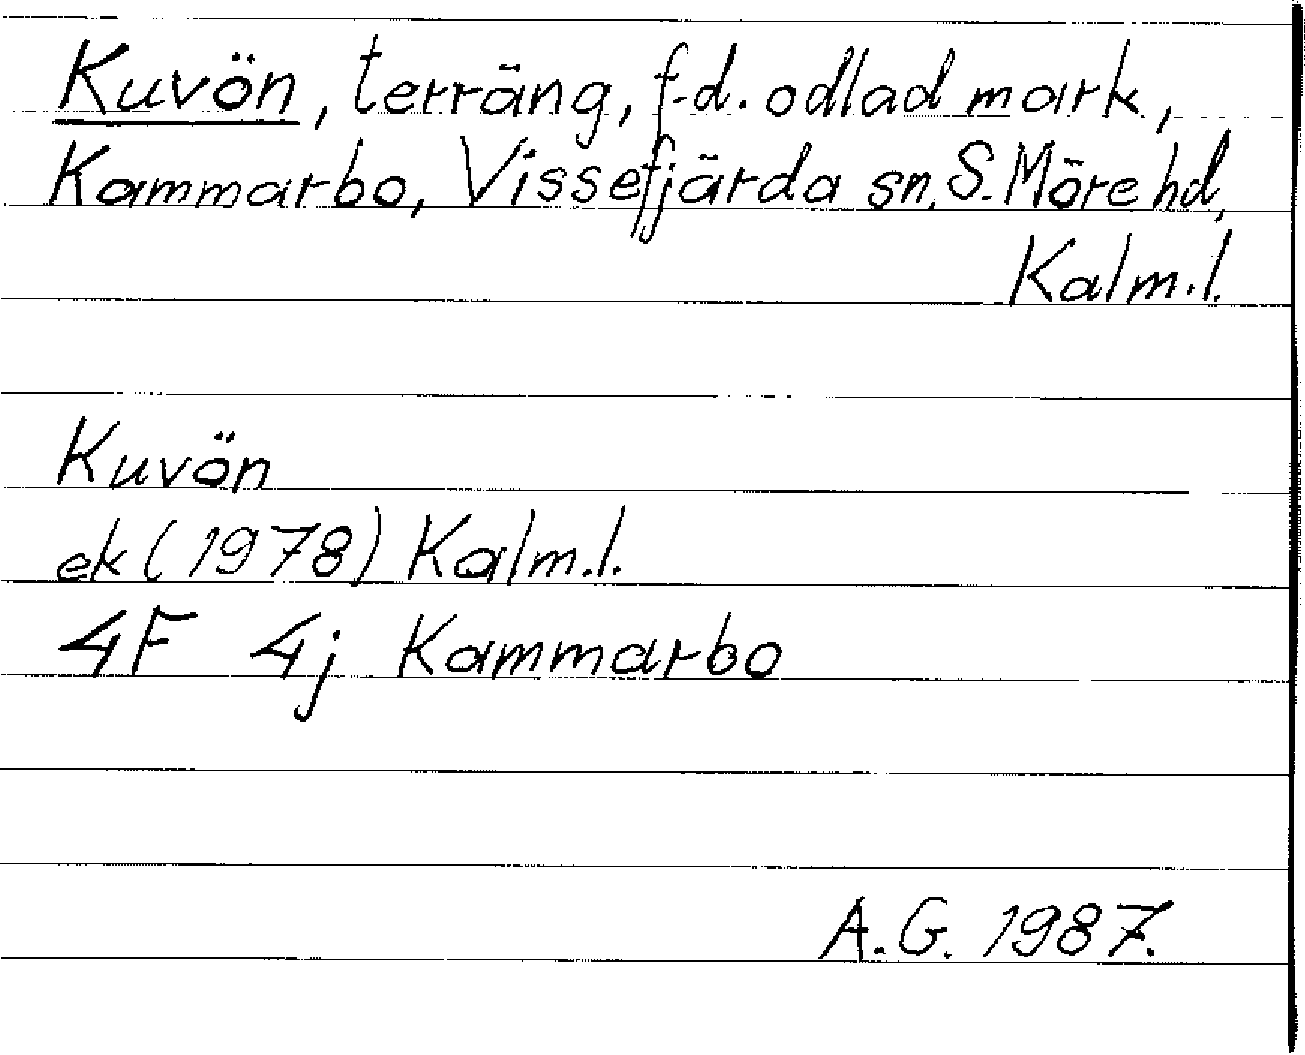 Kuvön, terräng, f.d. odlad mark,
Kammarbo, Vissefjärda sn, S. Möre hd,
Kalm.l.
Kuvön
ek (1978) Kalm.l.
4F 4j Kammarbo
A.G. 1987.